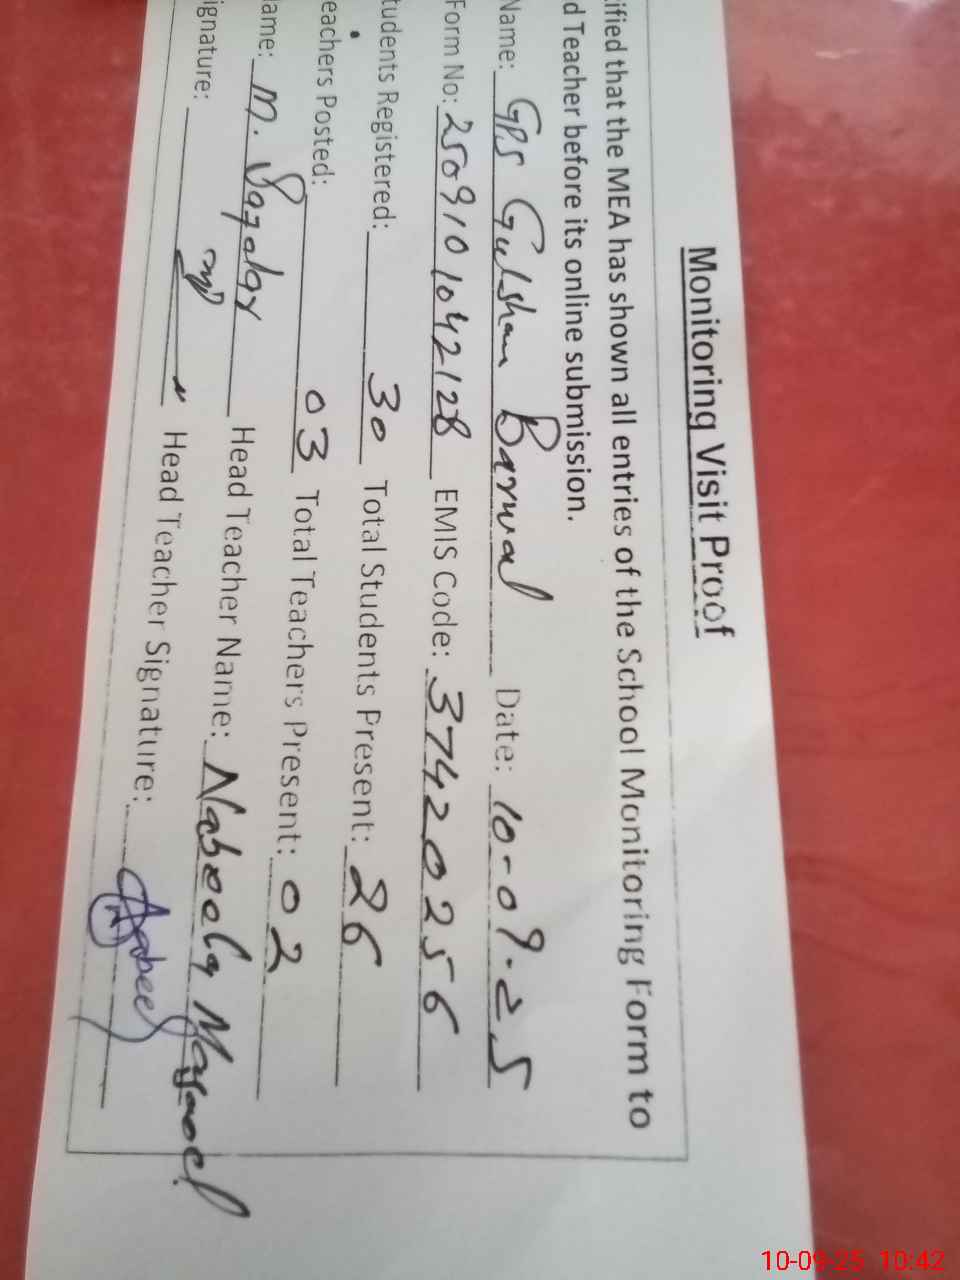 Monitoring Visit Proof
ified that the MEA has shown all entries of the School Monitoring Form to
d Teacher before its online submission.
Name: GPS Gulshan Barwal Date: 10-09-25
Form No: 2509101042128 EMIS Code: 37420256
tudents Registered: 30 Total Students Present: 26
eachers Posted: 03 Total Teachers Present: 02
ame: M. Head Teacher Name: Nabeela
ignature: Head Teacher Signature:
10-09-25 10:42